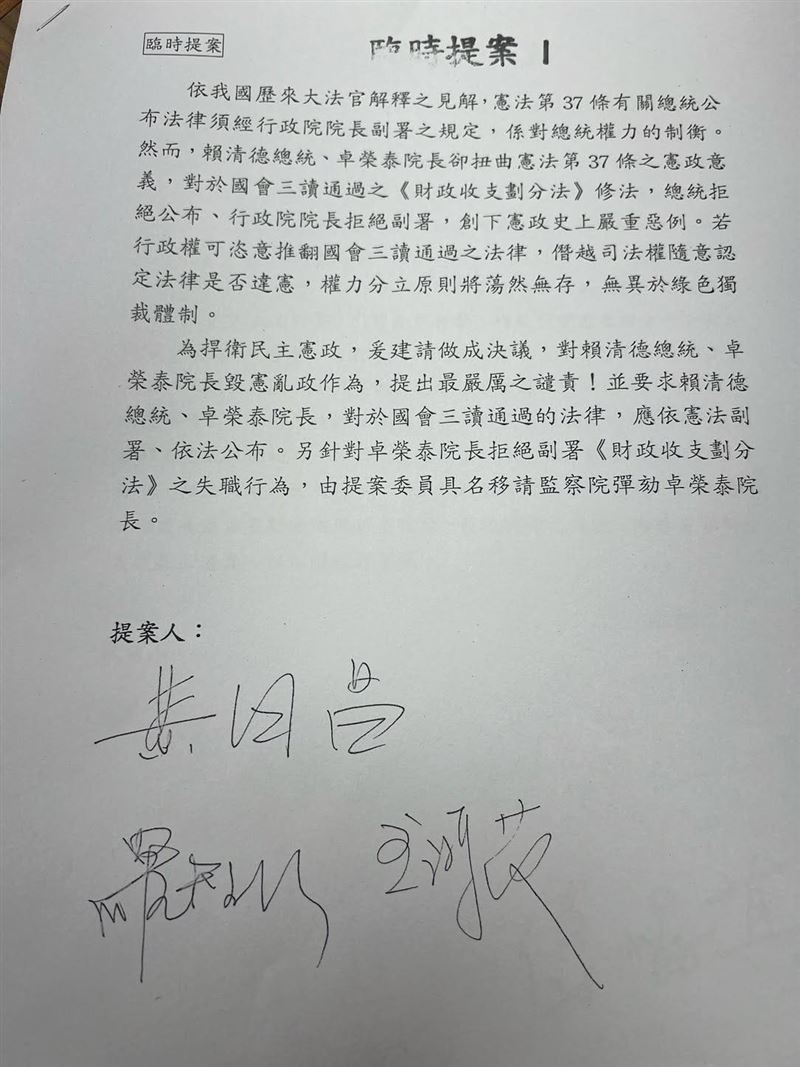 臨時提案
臨時提案 1
依我國歷來大法官解釋之見解,憲法第 37 條有關總統公
布法律須經行政院院長副署之規定，係對總統權力的制衡。
然而，賴清德總統、卓榮泰院長卻扭曲憲法第 37 條之憲政意
義，對於國會三讀通過之《財政收支劃分法》修法，總統拒
絕公布、行政院院長拒絕副署，創下憲政史上嚴重惡例。若
行政權可恣意推翻國會三讀通過之法律，僭越司法權隨意認
定法律是否違憲，權力分立原則將蕩然無存，無異於綠色獨
裁體制。
為捍衛民主憲政，爰建請做成決議，對賴清德總統、卓
榮泰院長毀憲亂政作為，提出最嚴厲之譴責！並要求賴清德
總統、卓榮泰院長，對於國會三讀通過的法律，應依憲法副
署、依法公布。另針對卓榮泰院長拒絕副署《財政收支劃分
法》之失職行為，由提案委員具名移請監察院彈劾卓榮泰院
長。
提案人：
黃國昌